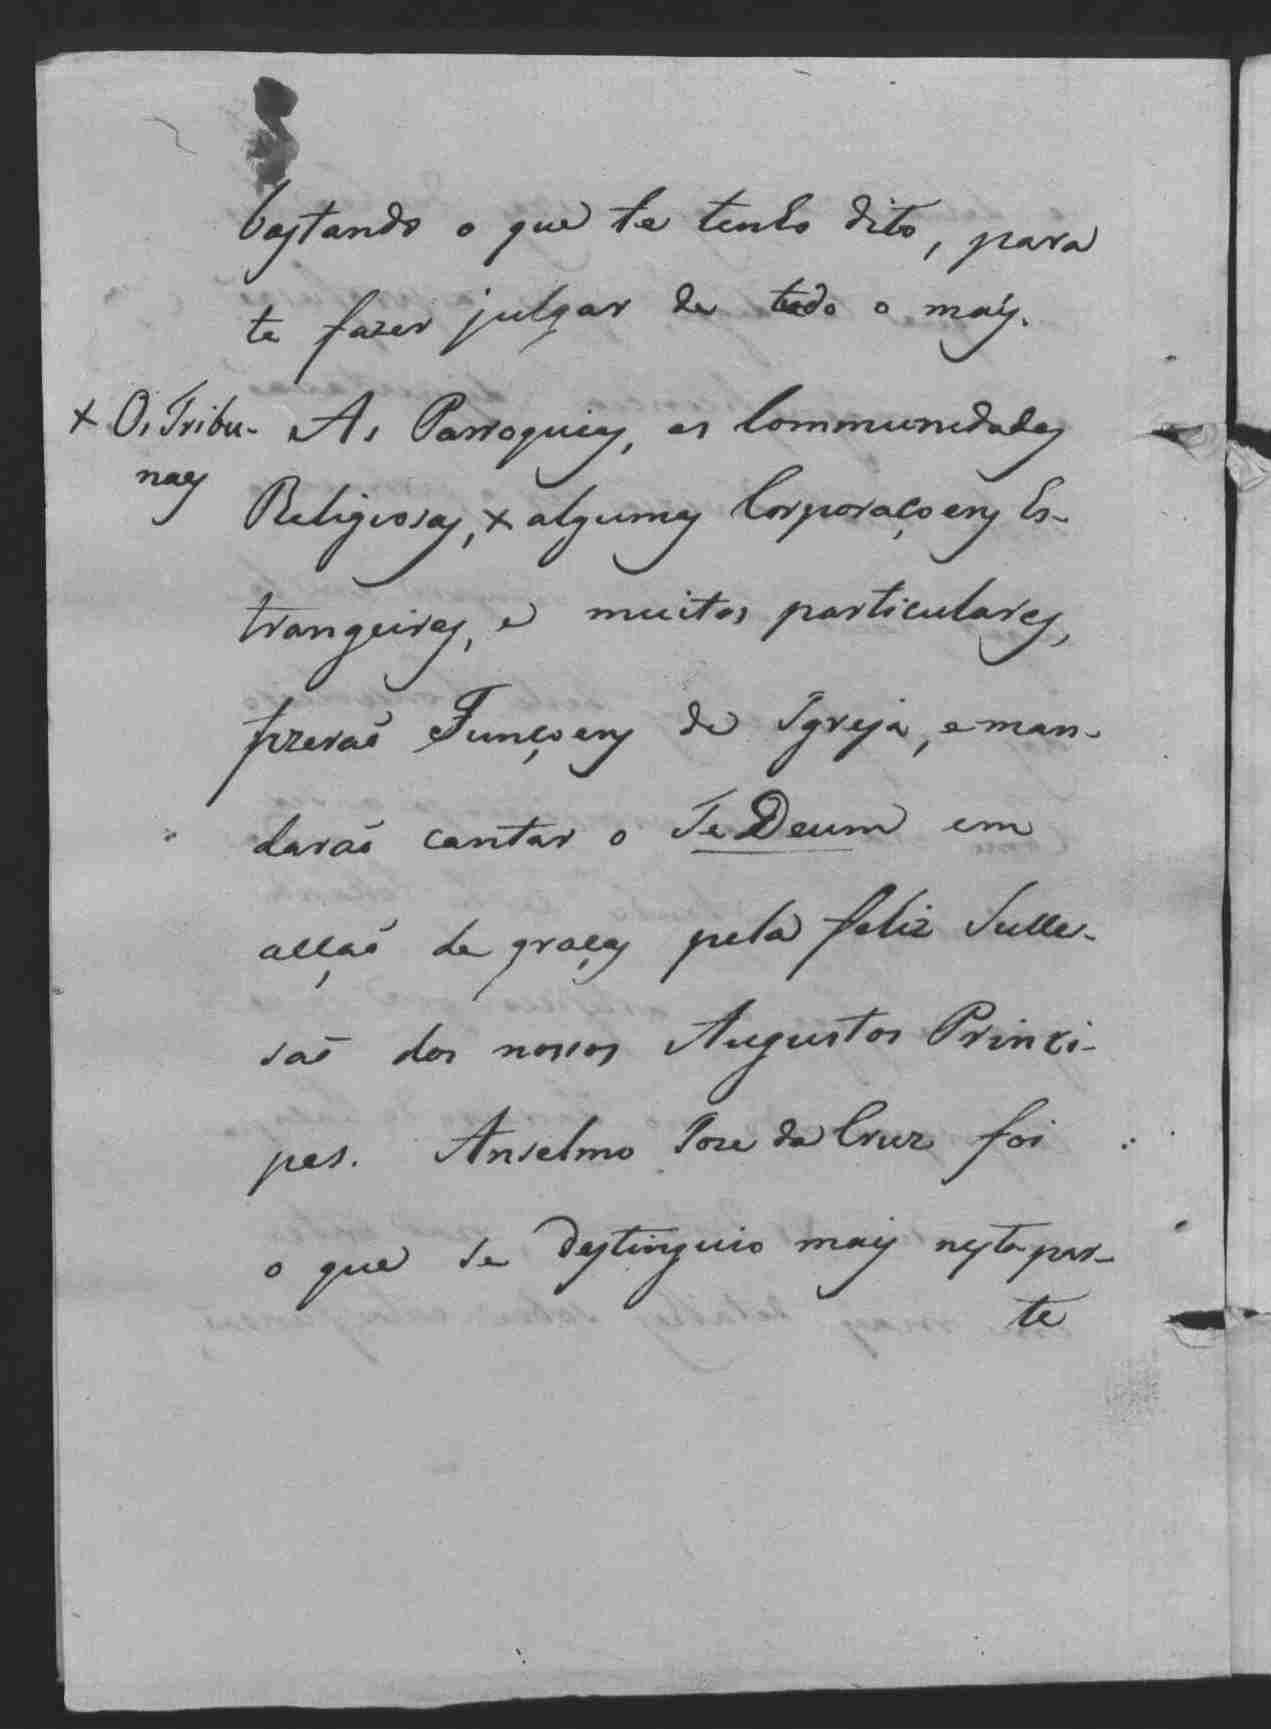 bastando o que te tenho dito, para
te fazer julgar de todo o mais.
+ Os Tribu-
naes
As Parroquias, as Communidades
Religiosas, + algumas Corporaçoens Es-
trangeiras, e muitos particulares,
fizeraõ Funçoens de Igreja, e man-
daraõ cantar o Te Deum em
acçaõ de graças pela feliz Succes-
saõ dos nossos Augustos Princi-
pes. Anselmo Joze da Cruz foi
o que se destinguio mais nesta par-
te